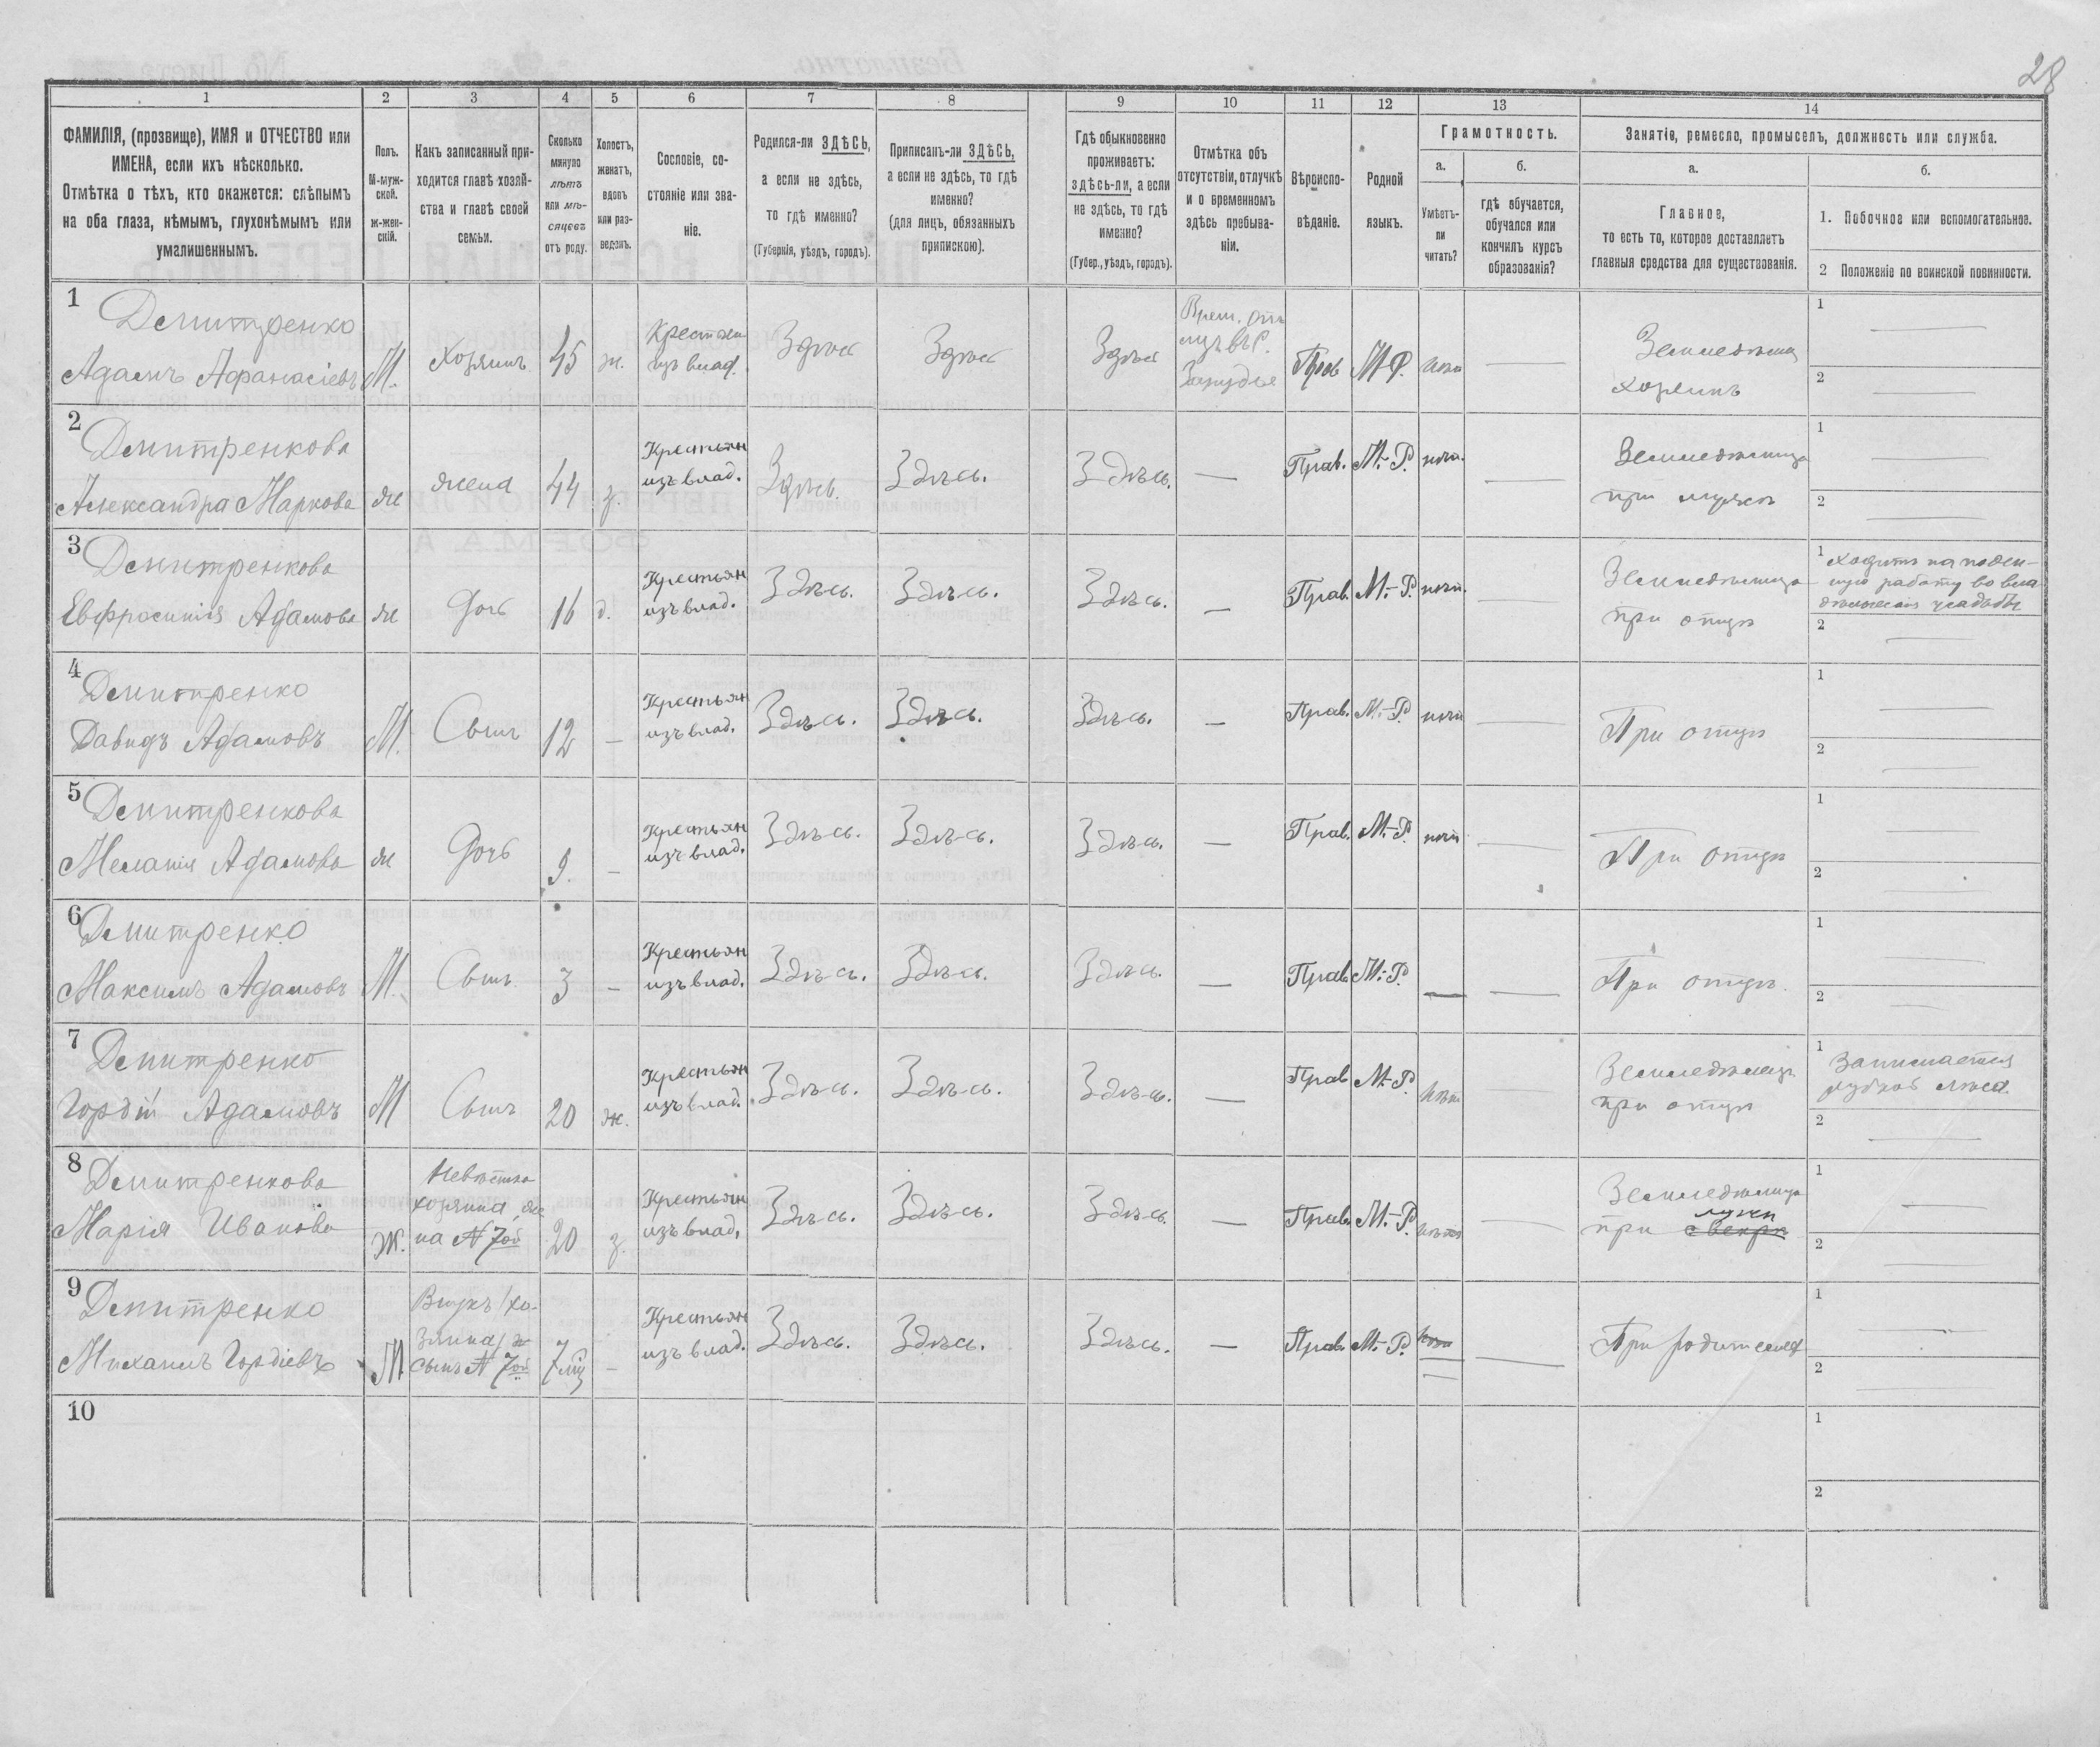 28
1 2 3 4 5 6 7 8 9 10 11 12 13 14
ФАМИЛІЯ, (прозвище), ИМЯ и ОТЧЕСТВО или
ИМЕНА, если ихъ нѣсколько.
Отмѣтка о тѣхъ, кто окажется: слѣпымъ
на оба глаза, нѣмымъ, глухонѣмымъ или
умалишеннымъ.
Полъ.
М-муж-
ской.
ж-жен-
скій.
Какъ записанный при-
ходится главѣ хозяй-
ства и главѣ своей
семьи.
Сколько
минуло
лѣтъ
или мѣ-
сяцевъ
отъ роду.
Холостъ,
женатъ,
вдовъ
или раз-
веденъ.
Сословіе, со-
стояніе или зва-
ніе.
Родился-ли ЗДѢСЬ,
а если не здѣсь,
то гдѣ именно?
(Губернія, уѣздъ, городъ).
Приписанъ-ли ЗДѢСЬ,
а если не здѣсь, то гдѣ
именно?
(для лицъ, обязанныхъ
припискою).
Гдѣ обыкновенно
проживаетъ:
здѣсь-ли, а если
не здѣсь, то гдѣ
именно?
(Губер., уѣздъ, городъ).
Отмѣтка объ
отсутствіи, отлучкѣ
и о временномъ
здѣсь пребыва-
ніи.
Вѣроиспо-
вѣданіе.
Родной
языкъ.
Грамотность.
а.
Умѣетъ-
ли
читать?
б.
гдѣ обучается,
обучался или
кончилъ курсъ
образованія?
Занятіе, ремесло, промыселъ, должность или служба.
а.
Главное,
то есть то, которое доставляетъ
главныя средства для существованія.
б.
1. Побочное или вспомогательное.
2 Положеніе по воинской повинности.
1
Дмитренко
Адамъ Афанасіевъ
М.
Хозяинъ
45
ж.
Крестьян
изъ влад.
Здѣсь
Здѣсь
Здѣсь
Врем. отл.
Прав
М.Р.
нѣтъ
Земледѣлец
хозяинъ
1
2
2
Дмитренкова
Александра Маркова
ж
жена
44
з.
Крестьян
изъ влад.
Здѣсь.
Здѣсь.
Здѣсь.
—
Прав.
М.-Р.
нѣтъ.
Земледѣлица
при мужѣ
1
2
3
Дмитренкова
Евфросинія Адамова
ж
Дочь
16
д.
Крестьян
изъ влад.
Здѣсь.
Здѣсь.
Здѣсь.
—
Прав.
М.-Р.
нѣтъ.
Земледѣлица
при отцѣ
1 Ходитъ на поден-
ную работу во вла-
дѣльческія усадьбы
2
4
Дмитренко
Давидъ Адамовъ
М.
Сынъ
12
—
Крестьян
изъ влад.
Здѣсь.
Здѣсь.
Здѣсь.
—
Прав.
М.-Р.
нѣтъ
При отцѣ
1
2
5
Дмитренкова
Меланія Адамова
ж
Дочь
9.
—
Крестьян
изъ влад.
Здѣсь.
Здѣсь.
Здѣсь.
—
Прав.
М.-Р.
нѣтъ
При отцѣ
1
2
6
Дмитренко
Максимъ Адамовъ
М.
Сынъ
3
—
Крестьян
изъ влад.
Здѣсь.
Здѣсь.
Здѣсь.
—
Прав.
М.-Р.
—
При отцѣ.
1
2
7
Дмитренко
Гордій Адамовъ
М
Сынъ
20
ж.
Крестьян
изъ влад.
Здѣсь.
Здѣсь.
Здѣсь.
—
Прав
М.-Р.
нѣтъ
Земледѣлецъ
при отцѣ
1 Занимается
рубкой лѣса
2
8
Дмитренкова
Марія Иванова
Ж.
Невѣстка
хозяина, же
на № 7ой
20
з.
Крестьян
изъ влад.
Здѣсь.
Здѣсь.
Здѣсь.
—
Прав.
М.-Р.
нѣтъ
Земледѣлица
мужѣ
при свекрѣ
1
2
9
Дмитренко
Михаилъ Гордіевъ
М
Внукъ хо-
зяина,
сынъ № 7ой
7 мѣс
—
Крестьян
изъ влад.
Здѣсь.
Здѣсь.
Здѣсь.
—
Прав.
М.-Р.
нѣтъ
При родителях
1
2
10
1
2